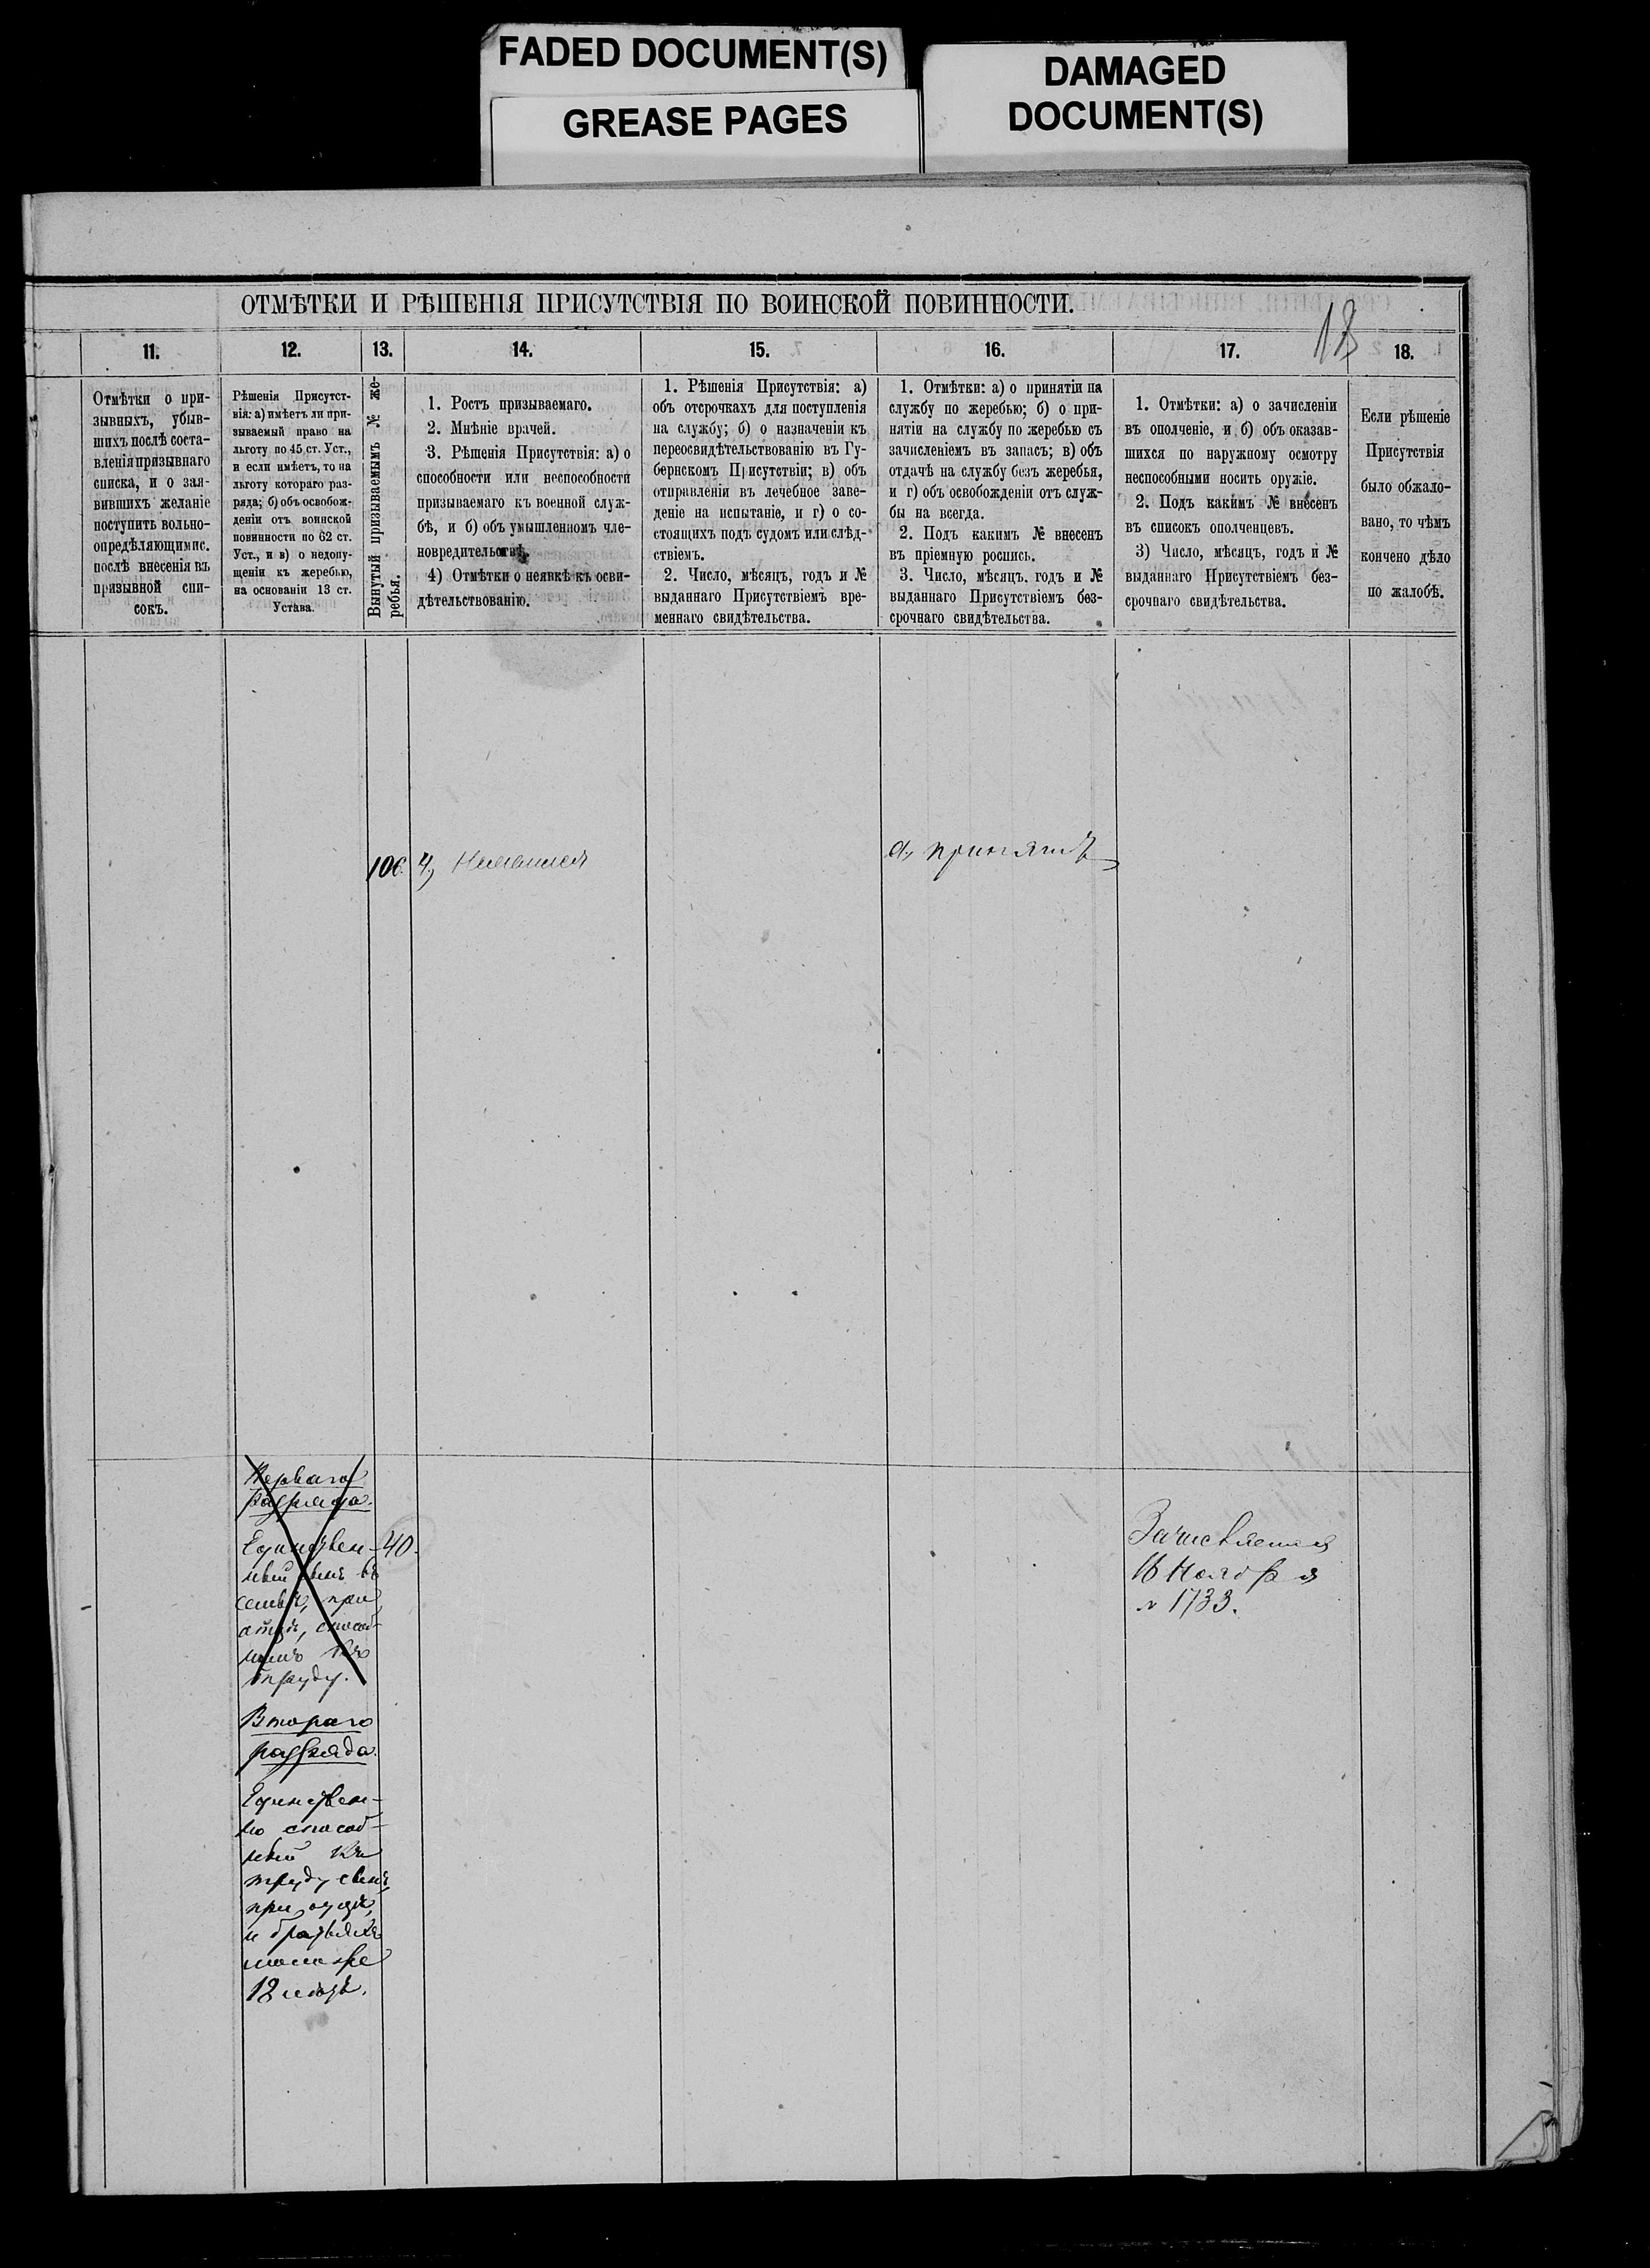 FADED DOCUMENT(S)
GREASE PAGES
DAMAGED
DOCUMENT(S)
ОТМѢТКИ И РѢШЕНІЯ ПРИСУТСТВІЯ ПО ВОИНСКОЙ ПОВИННОСТИ.
18
11.
12.
13.
14.
15.
16.
17.
18.
Отмѣтки о при-
зывныхъ, убыв-
шихъ послѣ соста-
вленія призывнаго
списка, и о зая-
вившихъ желаніе
поступить вольно-
опредѣляющимис.
послѣ внесенія въ
призывной спи-
сокъ.
Рѣшенія Присутст-
вія: а) имѣетъ ли при-
зываемый право на
льготу по 45 ст. Уст.,
и если имѣетъ, то на
льготу котораго раз-
ряда; б) объ освобож-
деніи отъ воинской
повинности по 62 ст.
Уст., и в) о недопу-
щеніи къ жеребью,
на основаніи 13 ст.
Устава.
Вынутый призываемымъ № же-
ребья.
1. Ростъ призываемаго.
2. Мнѣніе врачей.
3. Рѣшенія Присутствія: а) о
способности или неспособности
призываемаго къ военной служ-
бѣ, и б) объ умышленномъ чле-
новредительствѣ.
4) Отмѣтки о неявкѣ къ осви-
дѣтельствованію.
1. Рѣшенія Присутствія: а)
объ отсрочкахъ для поступленія
на службу; б) о назначеніи къ
переосвидѣтельствованію въ Гу-
бернскомъ Присутствіи; в) объ
отправленіи въ лечебное заве-
деніе на испытаніе, и г) о со-
стоящихъ подъ судомъ или слѣд-
ствіемъ.
2. Число, мѣсяцъ, годъ и №
выданнаго Присутствіемъ вре-
меннаго свидѣтельства.
1. Отмѣтки: а) о принятіи на
службу по жеребью; б) о при-
нятіи на службу по жеребью съ
зачисленіемъ въ запасъ; в) объ
отдачѣ на службу безъ жеребья,
и г) объ освобожденіи отъ служ-
бы на всегда.
2. Подъ какимъ № внесенъ
въ пріемную роспись.
3. Число, мѣсяцъ, годъ и №
выданнаго Присутствіемъ без-
срочнаго свидѣтельства.
1. Отмѣтки: а) о зачисленіи
въ ополченіе, и б) объ оказав-
шихся по наружному осмотру
неспособными носить оружіе.
2. Подъ какимъ № внесенъ
въ списокъ ополченцевъ.
3) Число, мѣсяцъ, годъ и №
выданнаго Присутствіемъ без-
срочнаго свидѣтельства.
Если рѣшеніе
Присутствія
было обжало-
вано, то чѣмъ
кончено дѣло
по жалобѣ.
106. 4) Неявился
а, принятъ
Перваго
разряда.
Единствен-
ный сынъ въ
семьѣ, при
отцѣ, способ-
номъ къ
труду.
40.
Втораго
разряда.
Единствен-
но способ-
ный къ
труду сынъ
при отцѣ,
и братьяхъ
моложе
18 лѣтъ.
16 Ноября
№ 1733.